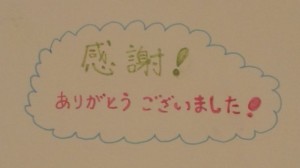 感謝!
ありがとう ございました!